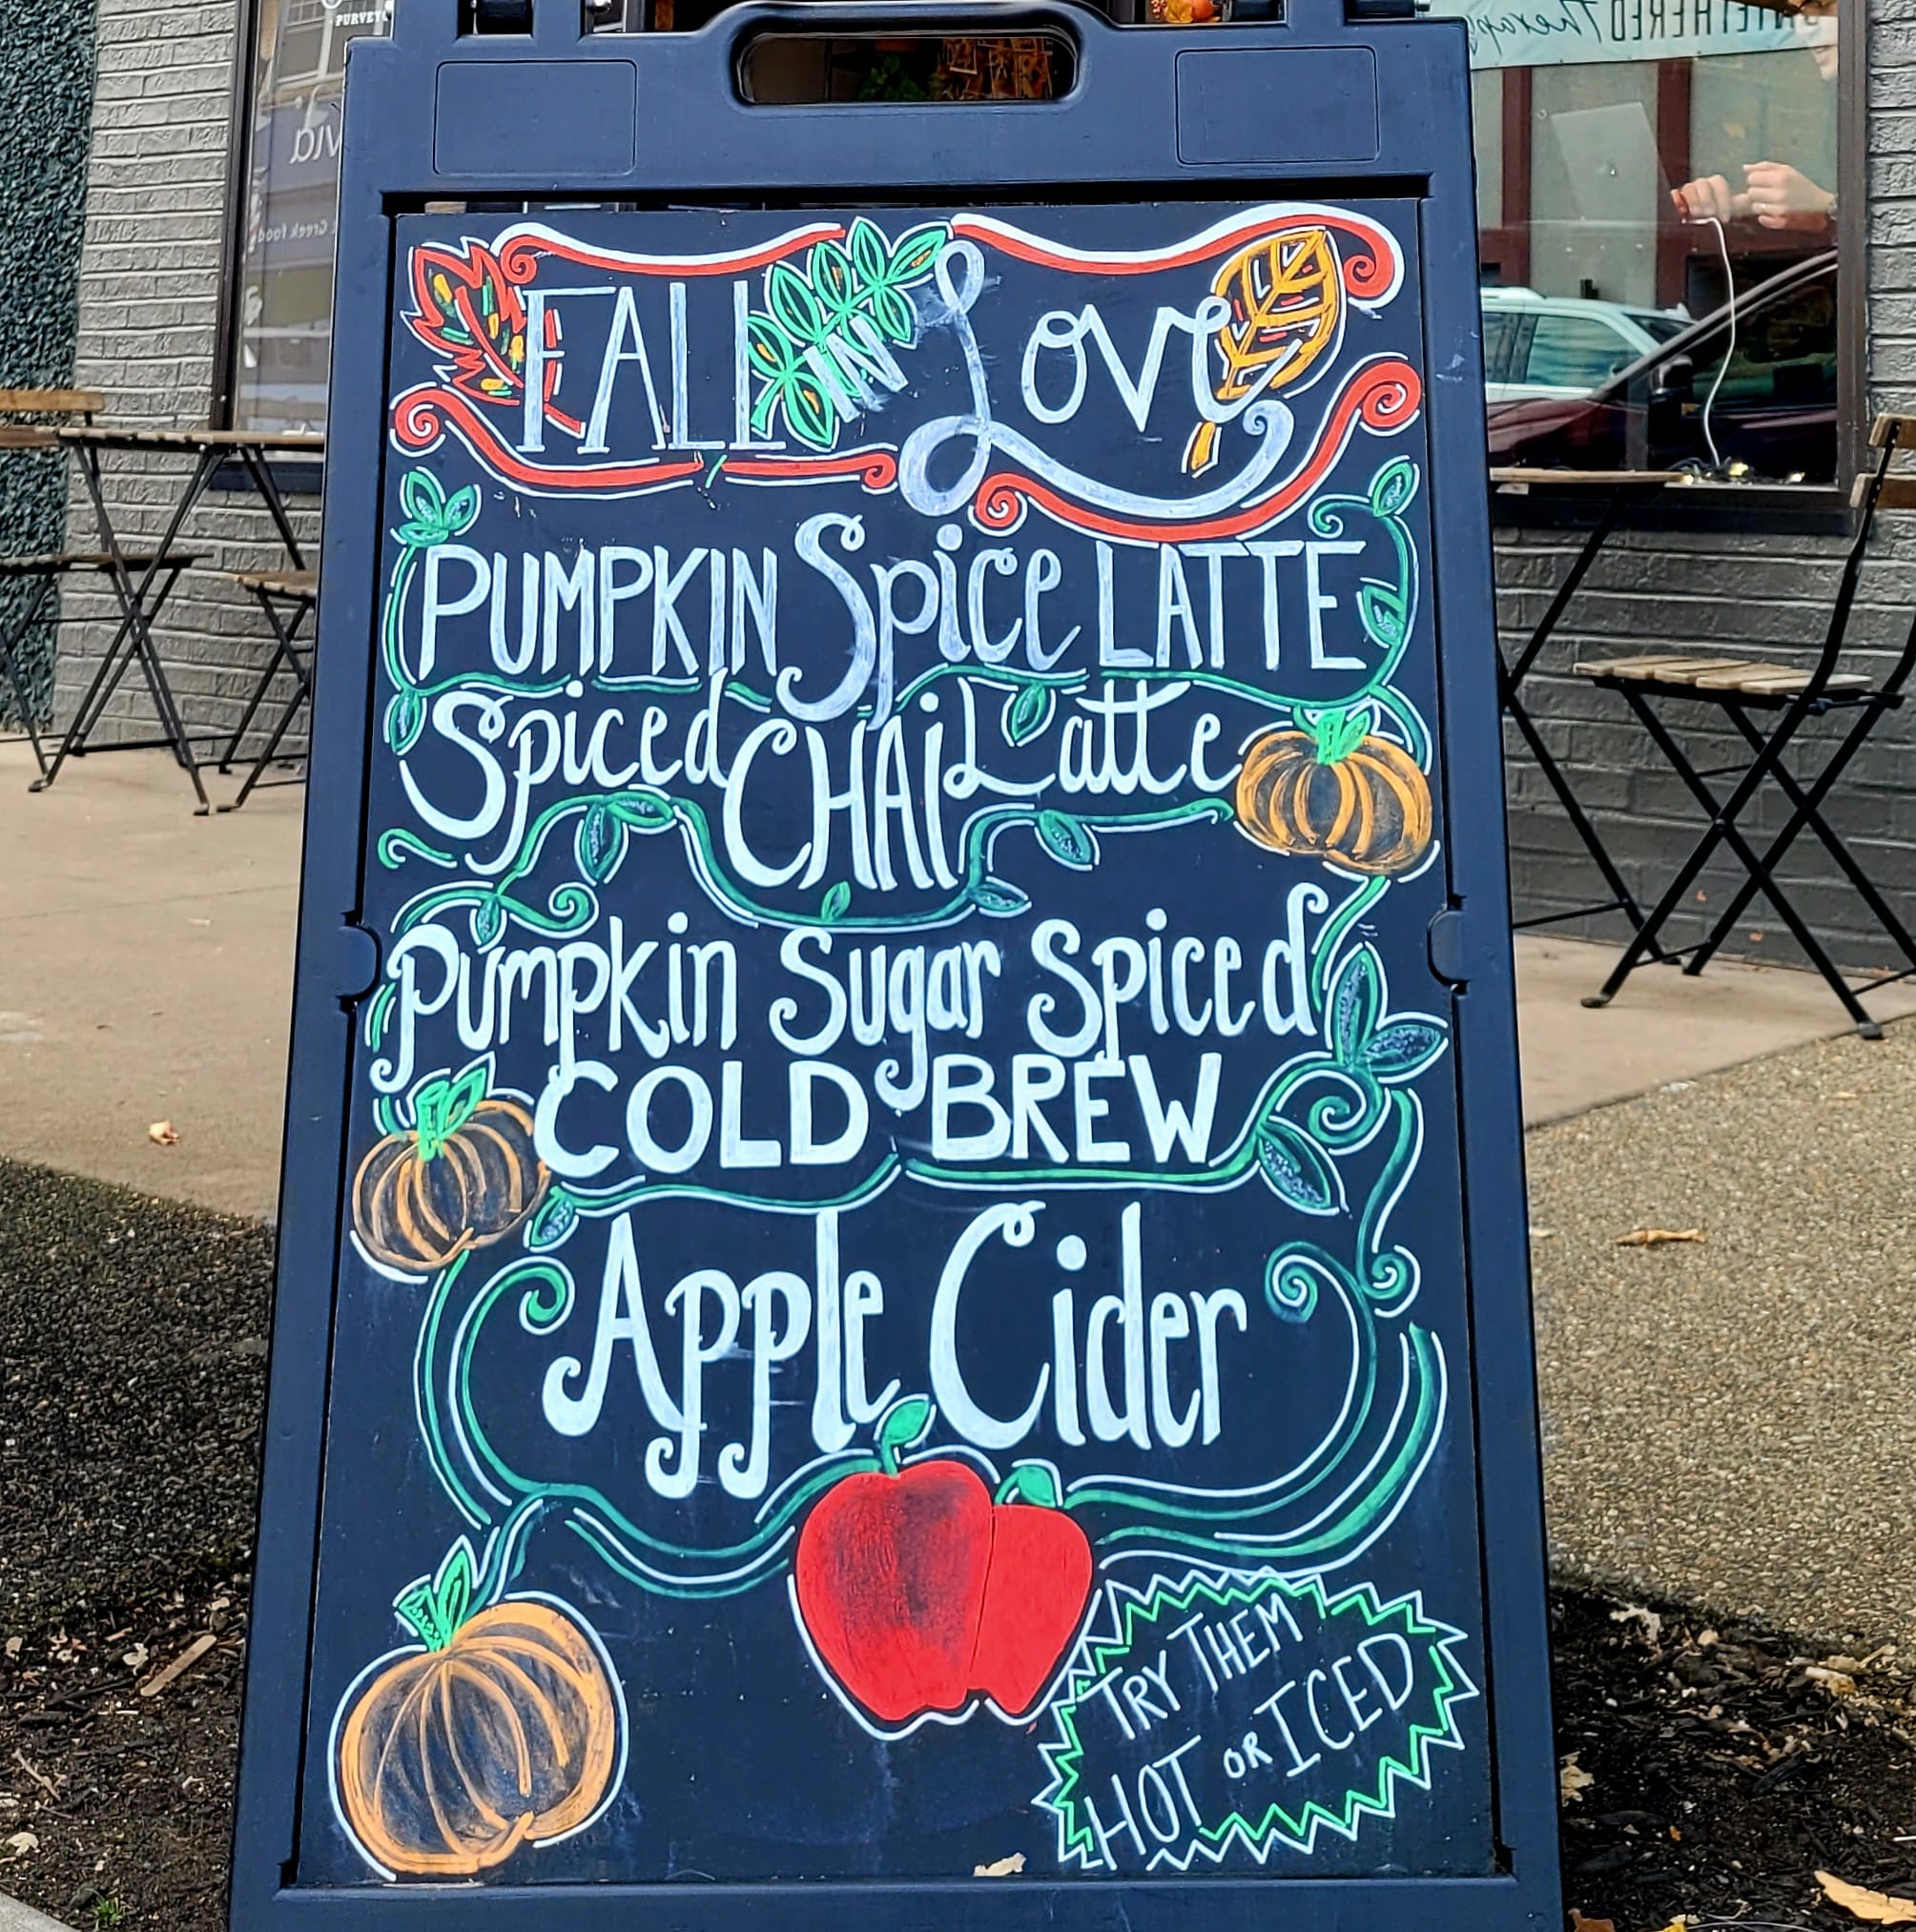 PURVEYO
UNTETHERED Therapy
Greek food
FALL IN Love
PUMPKIN Spice LATTE
Spiced CHAi Latte
Pumpkin Sugar Spiced
COLD BREW
Apple Cider
TRY THEM
HOT OR ICED